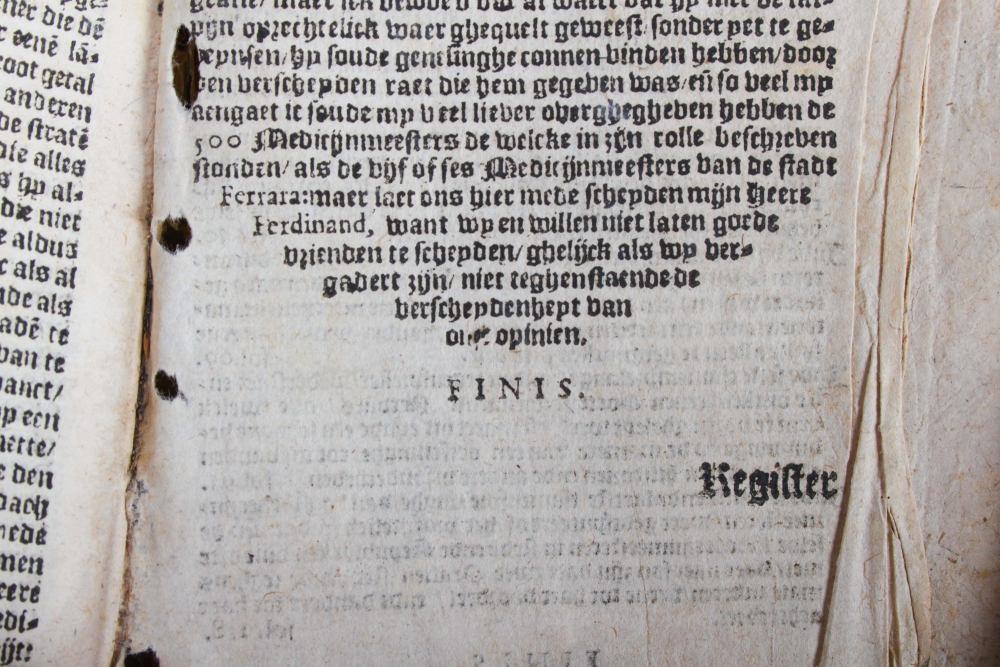 ner die dē
r eenē lā-
root getal
anderen
de stratē
die alles
s hy al-
die niet
e aldus
t als al
nde als
adē te
van te
hanct/
yp een
nette/
e den
dach
mede
men
eere
edi-
maer ick
pijn oprechtelick waer ghequelt geweest/ sonder yet te ge-
veynsen/ hy soude genesinghe connen vinden hebben/ door
den verscheyden raet die hem gegeven was/ eñ so veel my
aengaet ic soude my veel liever overghegheven hebben de
500 Medicijnmeesters de welcke in zijn rolle beschreven
stonden/ als de vijf of ses Medicijnmeesters van de stadt
Ferrara: maer laet ons hier mede scheyden mijn Heere
Ferdinand, want wy en willen niet laten goede
vrienden te scheyden/ ghelijck als wy ver-
gadert zijn/ niet teghenstaende de
verscheydenheyt van
onse opinien.
FINIS.
Register